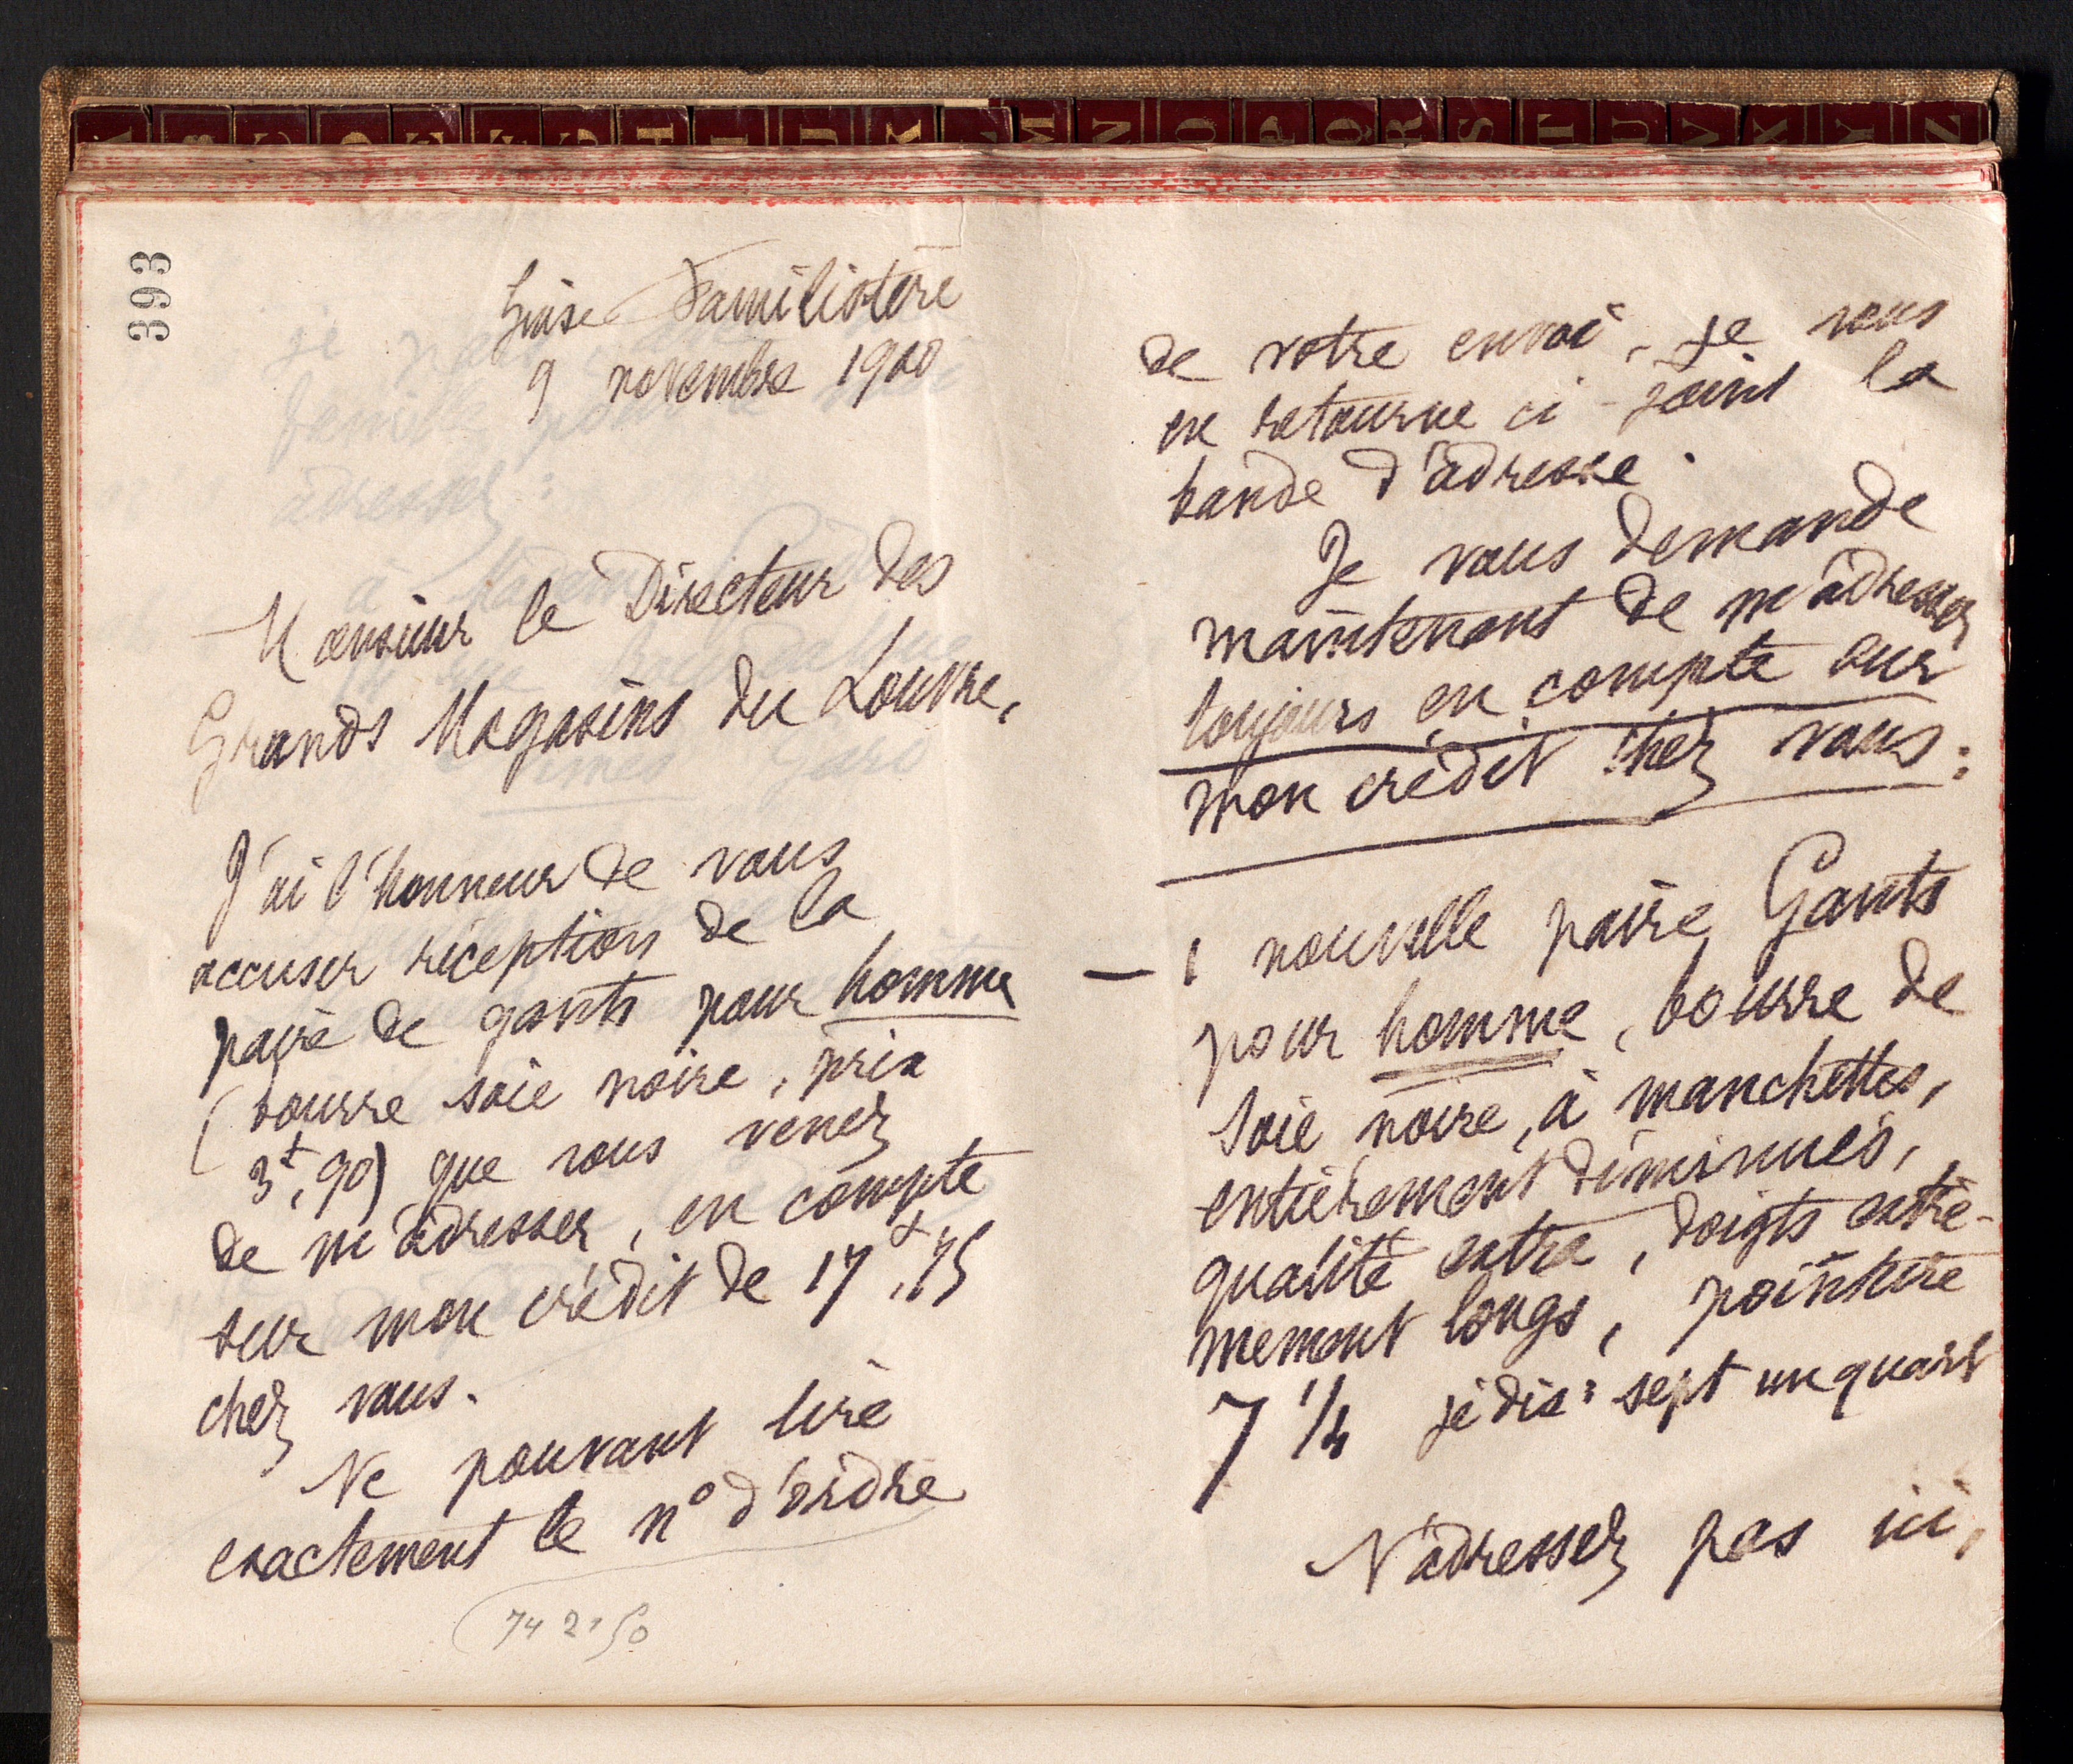 A B C D E F G H I J K L M N O P Q R S T U V X Y Z
393
Guise Familistère
9 novembre 1900
Monsieur le Directeur des
Grands Magasins du Louvre,
J'ai l'honneur de vous
accuser réception de la
paire de gants pour homme
(bourre soie noire, prix
3f,90) que vous venez
de m'adresser, en compte
sur mon crédit de 17f,75
chez vous.
Ne pouvant lire
exactement le n° d'ordre
(74 21 50
de votre envoi, je vous
en retourne ci-joint la
bande d'adresse.
Je vous demande
maintenant de m'adresser
toujours en compte sur
mon crédit chez vous:
— 1 nouvelle paire Gants
pour homme, bourre de
soie noire, à manchettes,
entièrement diminués,
qualité extra, doigts extrê-
mement longs, pointure
7 1/4 je dis: sept un quart
N'adressez pas ici,